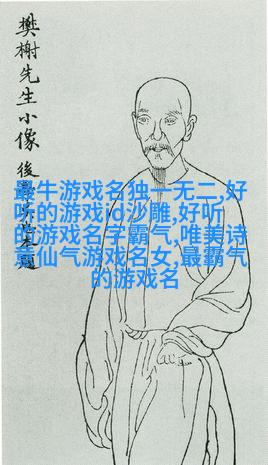 樊榭先生小像
後
最牛游戏名独一无二,好
听的游戏id沙雕,好听
的游戏名字霸气,唯美诗
意仙气游戏名女,最霸气
的游戏名